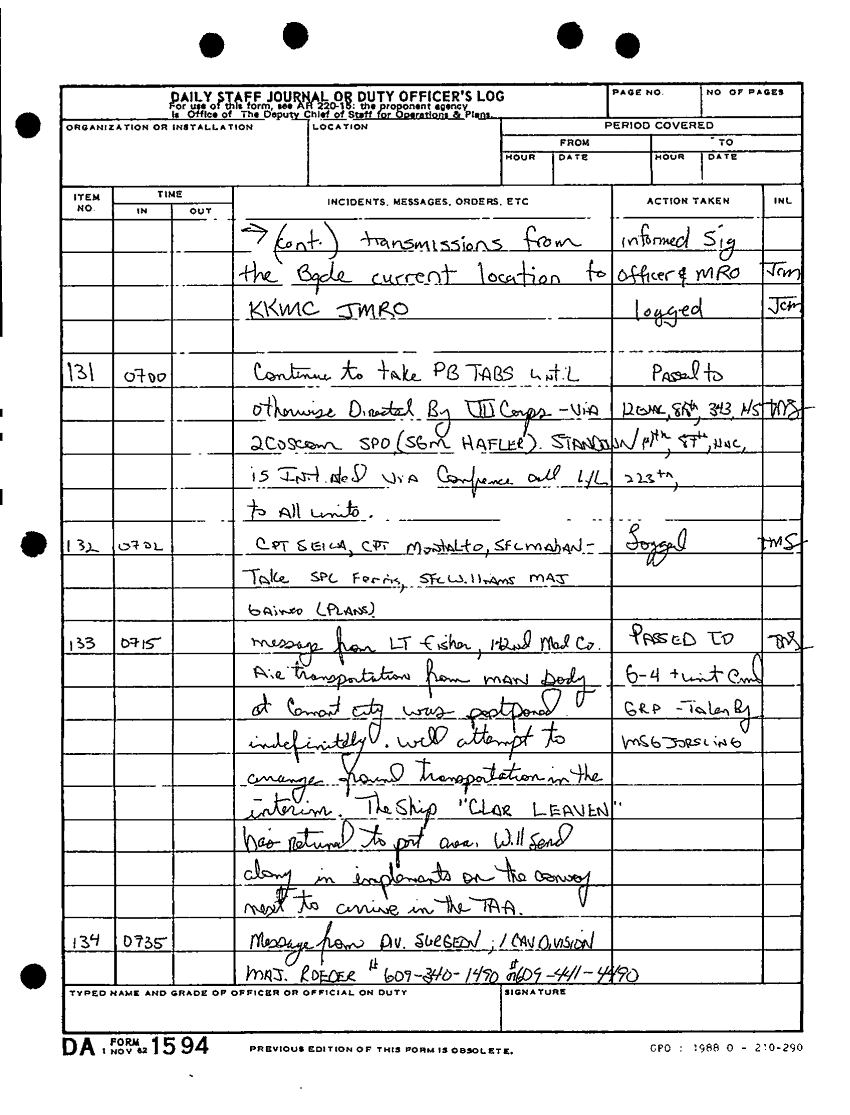 DAILY STAFF JOURNAL OR DUTY OFFICER'S LOG
For use of this form, see AR 220-15; the proponent agency
is Office of The Deputy Chief of Staff for Operations & Plans.
PAGE NO.
NO OF PAGES
ORGANIZATION OR INSTALLATION
LOCATION
PERIOD COVERED
FROM
TO
HOUR
DATE
HOUR
DATE
ITEM NO.
TIME
IN
OUT
INCIDENTS, MESSAGES, ORDERS, ETC
ACTION TAKEN
INL
→ (cont.) transmissions from informed Sig
the Bgde current location to officer & MRO Jcm
KKMC JMRO logged Jcm
131 0700 Continue to take PB TABS until Passed to
otherwise Directed By VII Corps - VIA 12EVAC, 343, TMS
2COSCOM SPO (SGM HAFLER). STANDOWN
is Initiated VIA Confrence call L/L 223rd,
to All units.
132 0702 CPT SEILA, CPT Montalto, SFC MAHAN - Logged TMS
Take SPC Ferris, SFC Williams MAJ
Gaines (PLANS)
133 0715 message from LT Fisher, 142nd Med Co. PASSED TO TMS
Air transportation from main body G-4 + unit Cmd
at Cement city was postponed GRP - Taken By
indefinitely. will attempt to MSG JORSLING
arrange ground transportation in the
interim. The Ship "CLAR LEAVEN"
has returned to port area. Will Send
along in implements on the convoy
next to arrive in the TAA.
134 0735 Message from DIV. SURGEON; 1 CAV DIVISION
MAJ. ROEDER # 609-340-1490 # 609-441-4490
TYPED NAME AND GRADE OF OFFICER OR OFFICIAL ON DUTY
SIGNATURE
DA FORM 1 NOV 62 1594
PREVIOUS EDITION OF THIS FORM IS OBSOLETE.
GPO : 1988 O - 210-290